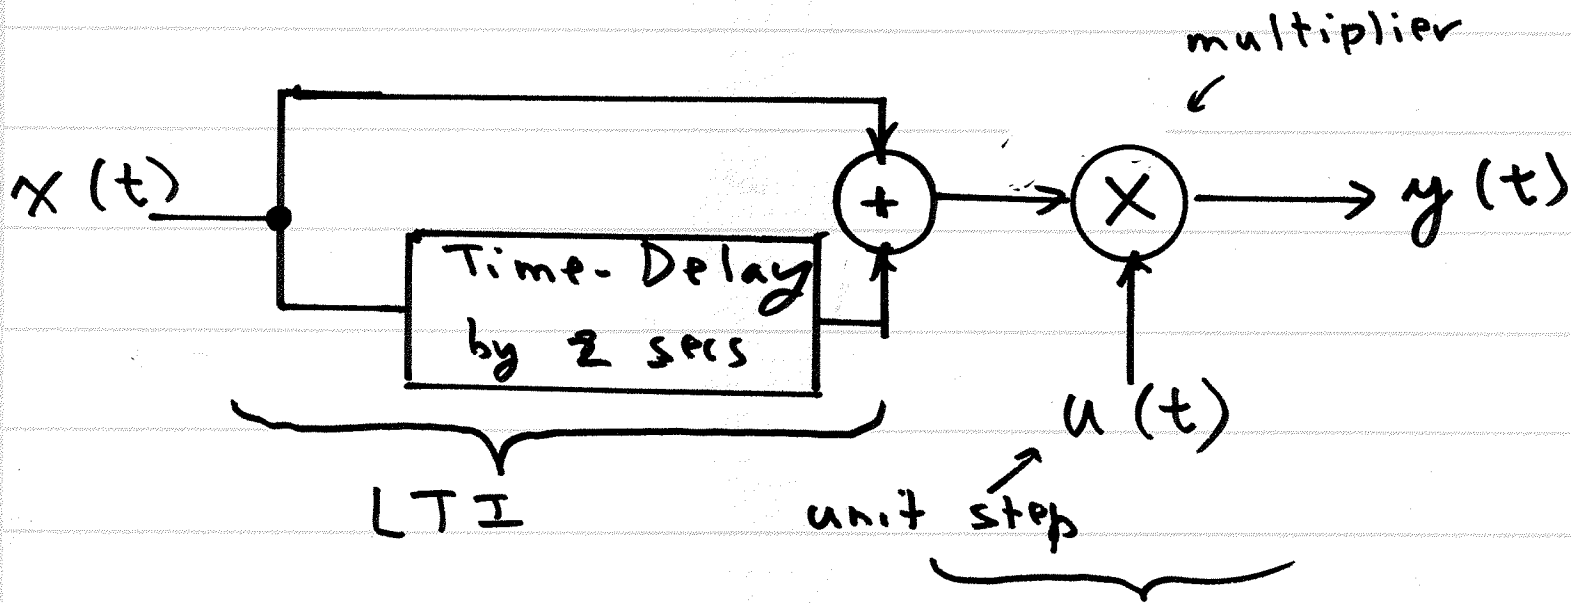 multiplier
x(t)
+
×
y(t)
Time-Delay
by 2 secs
u(t)
LTI
unit step